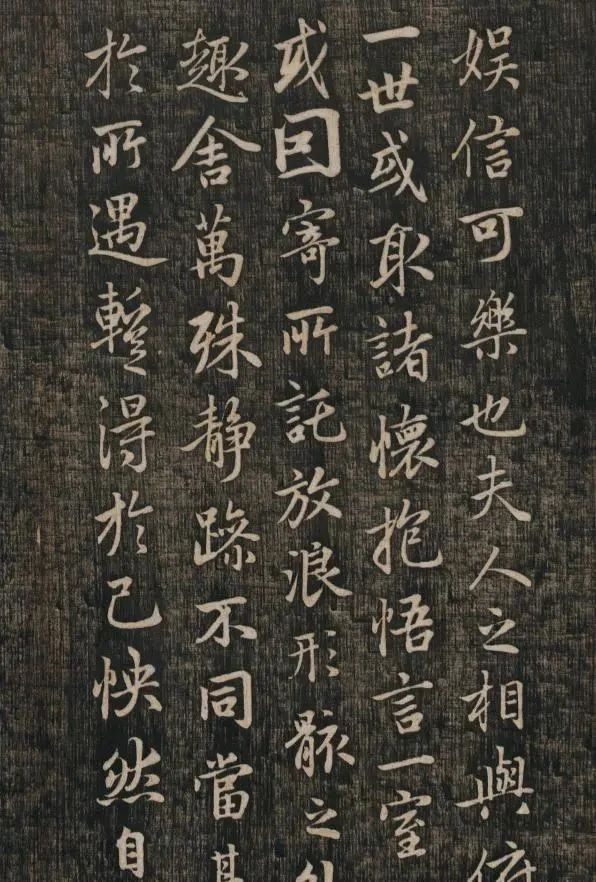 娛信可樂也夫人之相與俯
一世或取諸懷抱悟言一室
或因寄所託放浪形骸之外
趣舍萬殊静躁不同當其
於所遇暫得於己怏然自